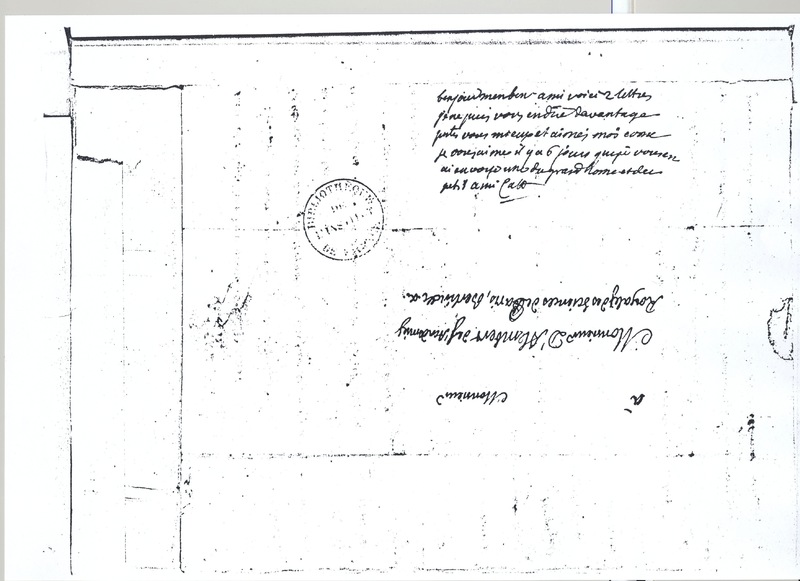 bonjour mon bon ami voici 2 lettres
je ne puis vous en dire davantage
vous m'occupe et aimés moi comme
je vous aime il y a 6 jours que je vous en
ai envoyé une du grand home et du
petit ami Catt
BIBLIOTHEQUE
DE
L'INSTITUT
DE FRANCE
à
Monsieur
Monsieur D'Alembert de l'Academie
Royale des Sciences de Paris, &c.